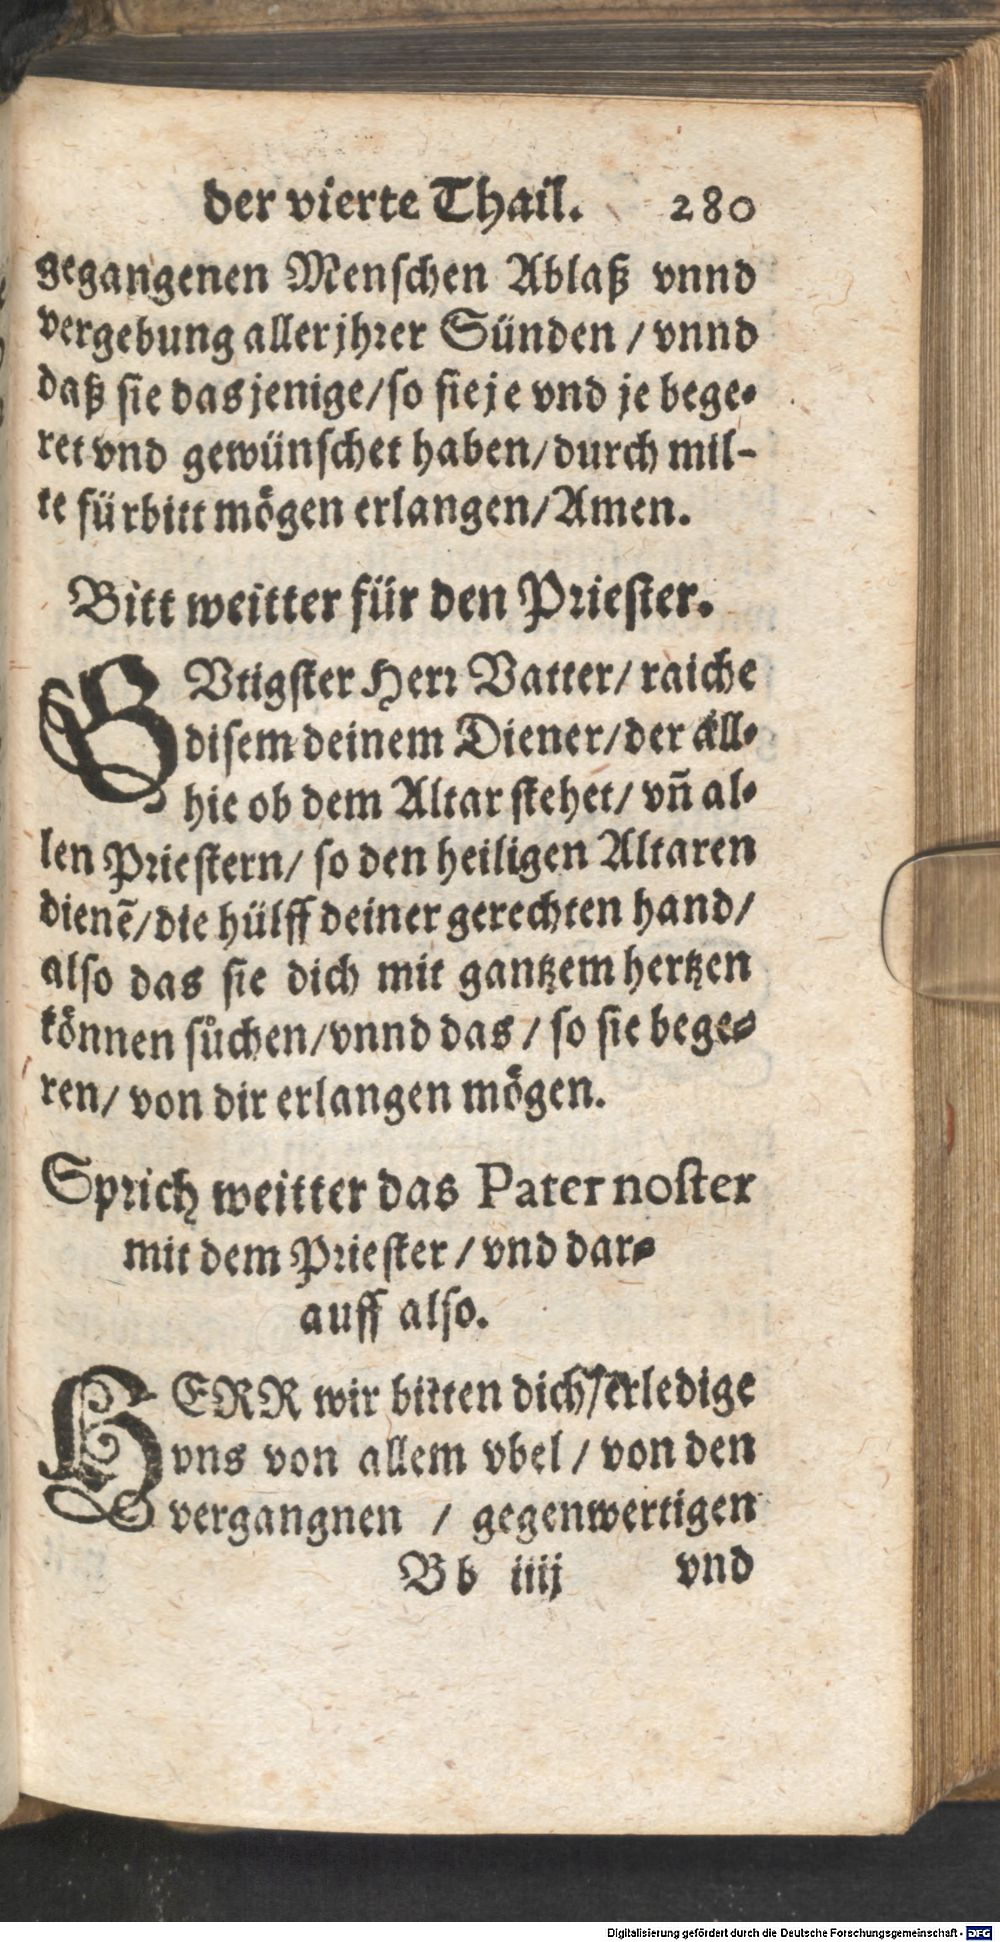 der vierte Thail. 280
gegangenen Menschen Ablaß vnnd
vergebung aller jhrer Sünden / vnnd
daß sie das jenige / so sie je vnd je bege-
ret vnd gewünschet haben / durch mil-
te fürbitt mögen erlangen / Amen.
Bitt weitter für den Priester.
GVtigster Herr Vatter / raiche
disem deinem Diener / der all-
hie ob dem Altar stehet / vn̄ al-
len Priestern / so den heiligen Altaren
dienē / die hülff deiner gerechten hand /
also das sie dich mit gantzem hertzen
können sůchen / vnnd das / so sie bege-
ren / von dir erlangen mögen.
Sprich weitter das Pater noster
mit dem Priester / vnd dar-
auff also.
HERR wir bitten dich / erledige
vns von allem vbel / von den
vergangnen / gegenwertigen
Bb iiij vnd
Digitalisierung gefördert durch die Deutsche Forschungsgemeinschaft - DFG